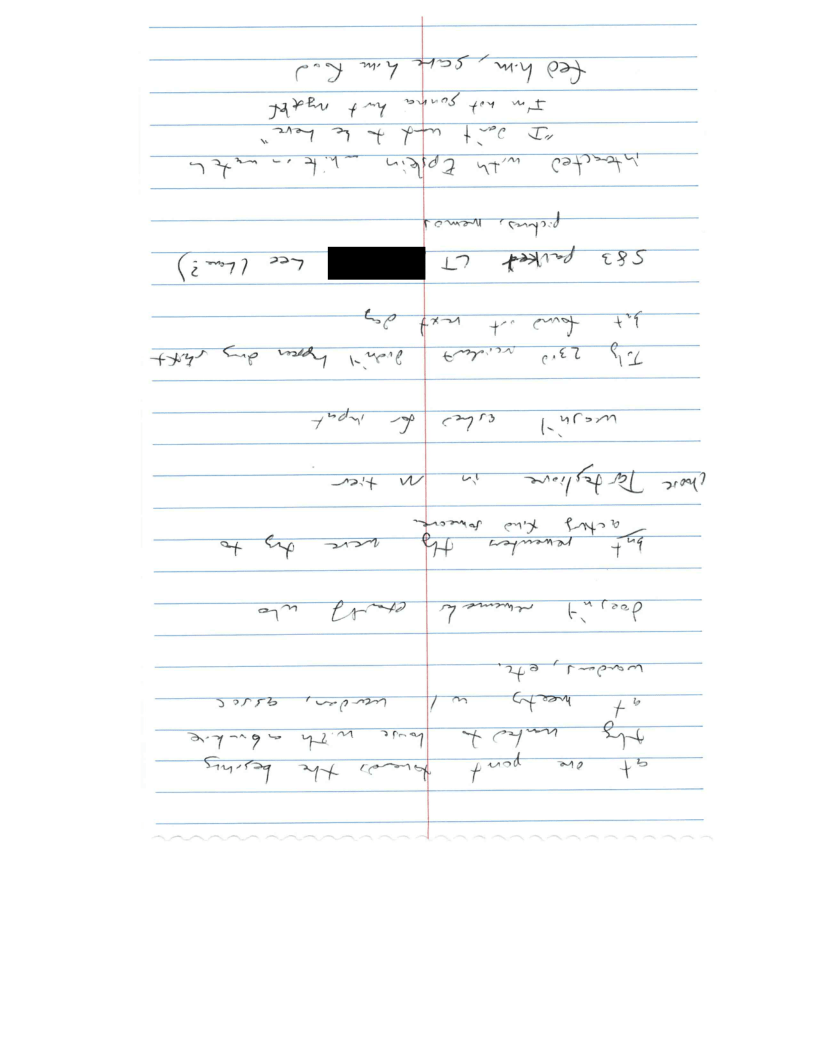 at one point towards the beginning
they wanted to house with a bunkie
at meeting w/ warden, assoc
wardens, etc.
doesn't remember exactly who
but remembers they were try to
find someone
chose Tartaglione in M tier
wasn't asked for input
July 23rd incident didn't happen dury shift
but found out next day
583 packet LT see (have?)
pictures, memos
interacted with Epstein while in watch
"I don't want to be here"
I'm not gonna hurt myself
fed him, gave him food